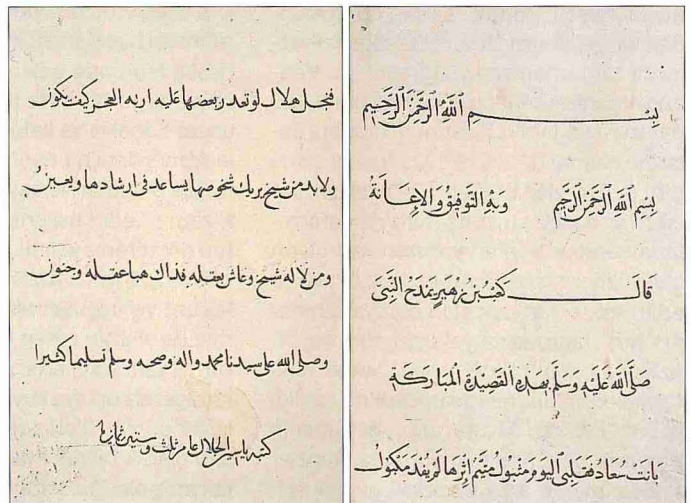 بِسْمِ اللَّهِ الرَّحْمٰنِ الرَّحِيمِ
بِسْمِ اللَّهِ الرَّحْمٰنِ الرَّحِيمِ وَبِهِ التَّوْفِيقُ وَالْإِعَانَةُ
قَالَ كَعْبُ بْنُ زُهَيْرٍ يَمْدَحُ النَّبِيَّ
صَلَّى اللَّهُ عَلَيْهِ وَسَلَّمَ بِهٰذِهِ الْقَصِيدَةِ الْمُبَارَكَةِ
بَانَتْ سُعَادُ فَقَلْبِي الْيَوْمَ مَتْبُولُ مُتَيَّمٌ إِثْرَهَا لَمْ يُفْدَ مَكْبُولُ
هلال لو تعدر بعضها عليه العجز كيف يكون
ولا بد من شيخ يريك شخوصها يساعد في ارشادها ويعين
ومن لا له شيخ وعاش بعقله فذاك هبا عقله وجنون
وصلى الله على سيدنا محمد واله وصحبه وسلم تسليما كثيرا
كتبه ياسر الجلال عام ثلث وستين